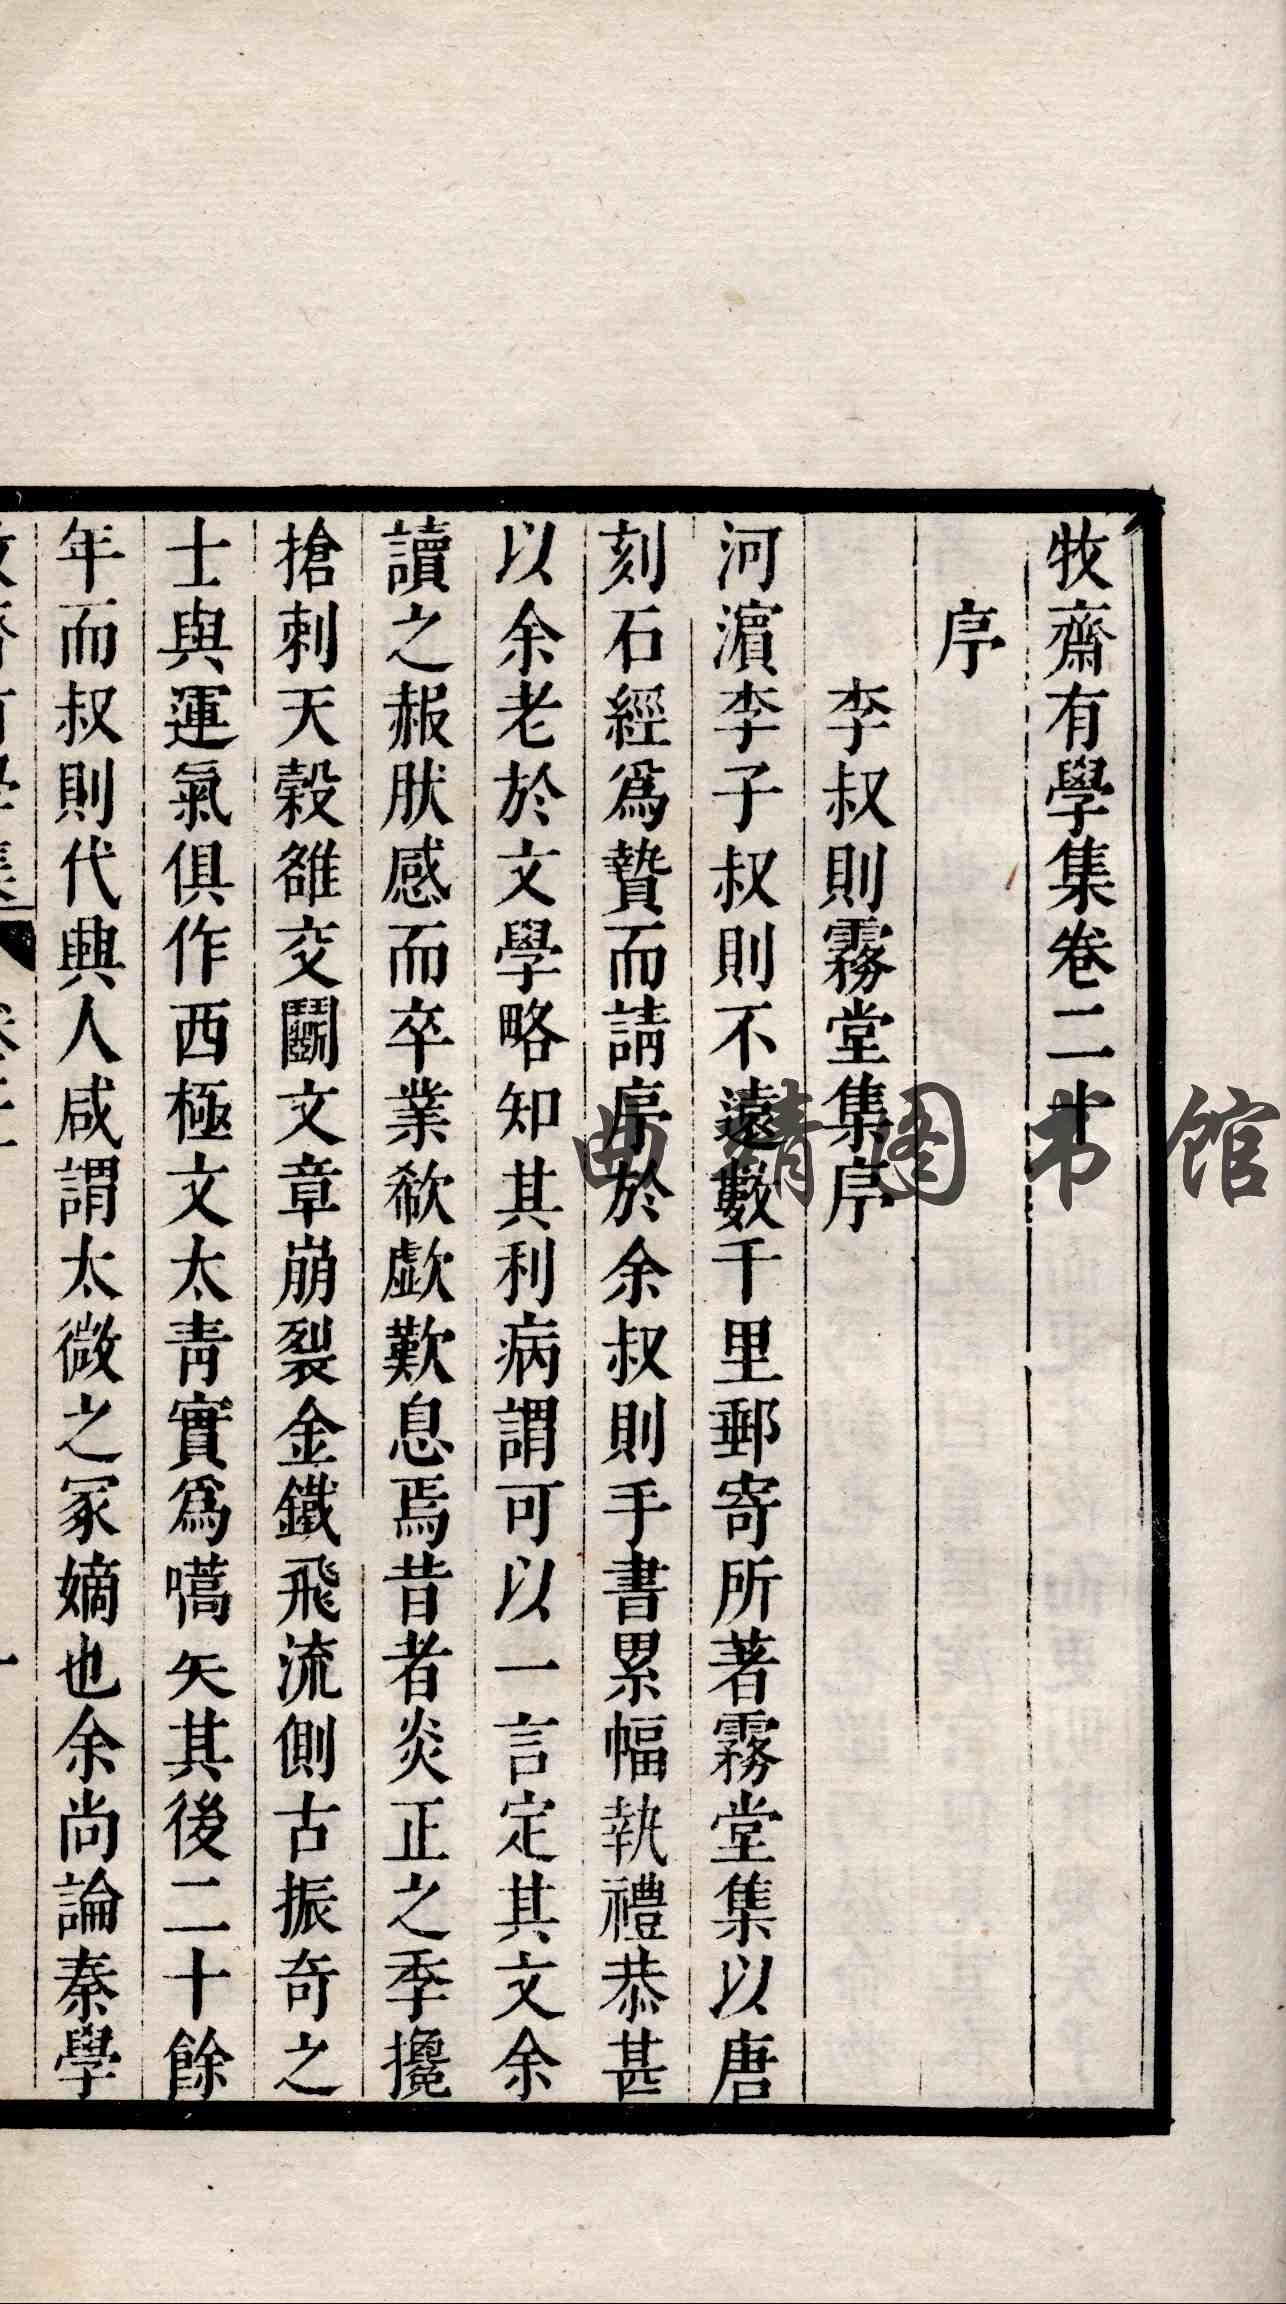 牧齋有學集卷二十
序
李叔則霧堂集序
河濵李子叔則不遠數千里郵寄所著霧堂集以唐
刻石經爲贄而請序於余叔則手書累幅執禮恭甚
以余老於文學略知其利病謂可以一言定其文余
讀之赧肰感而卒業欷歔歎息焉昔者炎正之季攙
搶刺天榖雒交鬭文章崩裂金鐵飛流側古振奇之
士與運氣俱作西極文太青實爲嚆矢其後二十餘
年而叔則代興人咸謂太微之冢嫡也余尚論秦學
曲靖图书馆